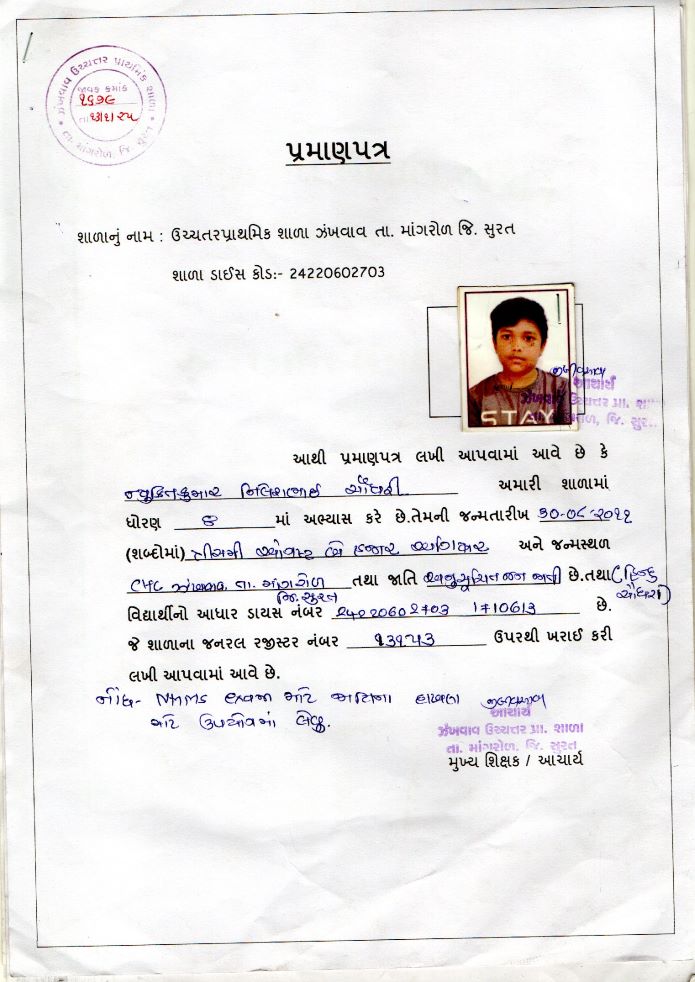 ઝંખવાવ ઉચ્ચતર પ્રાથમિક શાળા
જાવક ક્રમાંક
તા.
તા. માંગરોળ, જિ. સુરત
પ્રમાણપત્ર
શાળાનું નામ : ઉચ્ચતરપ્રાથમિક શાળા ઝંખવાવ તા. માંગરોળ જિ. સુરત
શાળા ડાઈસ કોડ:- 24220602703
STAY
આચાર્ય
ઝંખવાવ ઉચ્ચતર પ્રા. શા
જિ. સુર
આથી પ્રમાણપત્ર લખી આપવામાં આવે છે કે
નિલેશભાઈ ચૌધરી અમારી શાળામાં
ધોરણ ૮ માં અભ્યાસ કરે છે.તેમની જન્મતારીખ ૩૦-૦૮-૨૦૧૧
(શબ્દોમાં) ત્રીસમી ઓગષ્ટ બે હજાર અગિયાર અને જન્મસ્થળ
CHC ઝંખવાવ તા. માંગરોળ તથા જાતિ અનુસૂચિત જન જાતી છે.તથા (હિન્દુ
જિ. સુરત ચૌધરી)
વિદ્યાર્થીનો આધાર ડાયસ નંબર ૨૪૨૨૦૬૦૨૭૦૩ ૧૭૧૦૬૧૩ છે.
જે શાળાના જનરલ રજીસ્ટર નંબર ઉપરથી ખરાઈ કરી
લખી આપવામાં આવે છે.
નોંધ- NMMS માટે જાતિના દાખલા
માટે ઉપયોગમાં લેવું.
આચાર્ય
ઝંખવાવ ઉચ્ચતર પ્રા. શાળા
તા. માંગરોળ, જિ. સુરત
મુખ્ય શિક્ષક / આચાર્ય